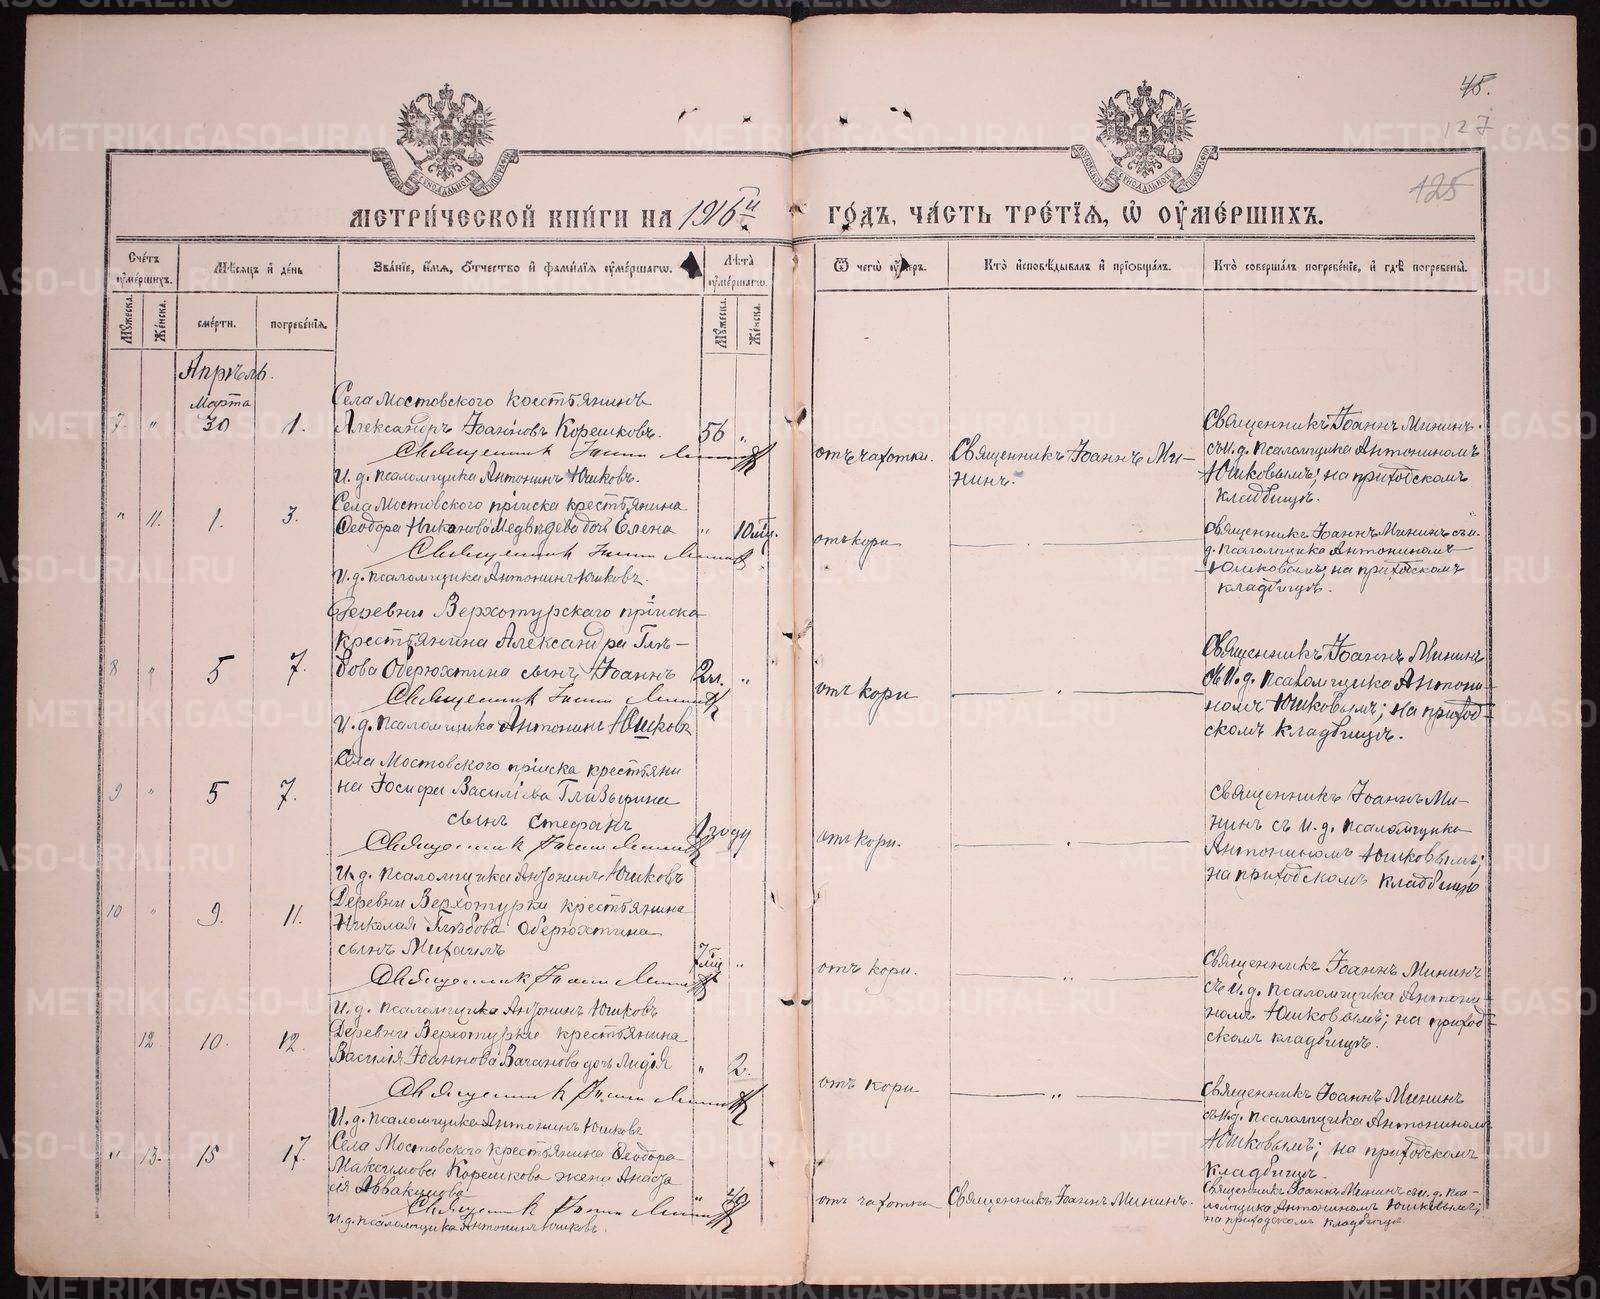 45.
127
125
МЕТРИ́ЧЕСКОЙ КНИ́ГИ НА 1916й ГО́ДЪ, ЧА́СТЬ ТРЕ́ТІѦ, Ѡ ОУМЕ́РШИХЪ.
Сче́тъ оуме́ршихъ.
Мѣ́сяцъ и҆ де́нь
Зва́нїе, и҆́мѧ, ѻ҆́тчество и҆ фами́лїѧ оуме́ршагѡ.
Лѣ́та оуме́ршагѡ.
Ѿ чегѡ̀ оу́меръ.
Кто̀ и҆сповѣ́дывалъ и҆ прїѡбща́лъ.
Кто̀ соверша́лъ погребе́нїе, и҆ гдѣ̀ погребены̀.
Мꙋ́жеска. Же́нска. сме́рти. погребе́нїѧ. Мꙋ́жеска. Же́нска.
Апрѣль.
Марта
7. " 30 1.
Села Мостовского крестьянинъ
Александръ Іоанновъ Корешковъ.
56 "
Священникъ Іоаннъ Мининъ
И. д. псаломщика Антонинъ Юшковъ.
отъ чахотки.
Священникъ Іоаннъ Ми-
нинъ.
Священникъ Іоаннъ Мининъ.
съ и. д. псаломщика Антониномъ
Юшковымъ; на приходскомъ
кладбищѣ.
" 11. 1. 3.
Села Мостовского пріиска крестьянина
Ѳеодора Никанова Медвѣдева дочь Елена
" 10 мц.
Священникъ Іоаннъ Мининъ
И. д. псаломщика Антонинъ Юшковъ.
отъ кори
Священникъ Іоаннъ Мининъ съ и.
д. псаломщика Антониномъ
Юшковымъ; на приходскомъ
кладбищѣ.
8 " 5 7.
Деревни Верхотурскаго пріиска
крестьянина Александра Глѣ-
бова Оберюхтина сынъ Іоаннъ
2 л. "
Священникъ Іоаннъ Мининъ
И. д. псаломщика Антонинъ Юшковъ
отъ кори
Священникъ Іоаннъ Мининъ
съ И. д. псаломщика Антони-
номъ Юшковымъ; на приход-
скомъ кладбищѣ.
9 " 5 7.
Села Мостовского пріиска крестьяни
на Іосифа Василіева Глазырина
сынъ Стефанъ
1 году
Священникъ Іоаннъ Мининъ
И. д. псаломщика Антонинъ Юшковъ
отъ кори.
Священникъ Іоаннъ Ми-
нинъ съ и. д. псаломщика
Антониномъ Юшковымъ;
на приходскомъ кладбищѣ
10 " 9. 11.
Деревни Верхотурки крестьянина
Николая Глѣбова Оберюхтина
сынъ Михаилъ
7 мц "
Священникъ Іоаннъ Мининъ
И. д. псаломщика Антонинъ Юшковъ
отъ кори.
Священникъ Іоаннъ Мининъ
съ и. д. псаломщика Антони-
номъ Юшковымъ; на приход-
скомъ кладбищѣ.
12 10. 12.
Деревни Верхотурки крестьянина
Василія Іоаннова Ваганова дочь Лидія
" 2.
Священникъ Іоаннъ Мининъ
И. д. псаломщика Антонинъ Юшковъ
отъ кори
Священникъ Іоаннъ Мининъ
съ и. д. псаломщика Антониномъ
Юшковымъ; на приходскомъ
кладбищѣ.
" 13. 15 17.
Села Мостовского крестьянина Ѳеодора
Максимова Корешкова жена Анаста
сія Аввакумова
" 49
Священникъ Іоаннъ Мининъ
И. д. псаломщика Антонинъ Юшковъ.
отъ чахотки
Священникъ Іоаннъ Мининъ.
Священникъ Іоаннъ Мининъ съ и. д. пса-
ломщика Антониномъ Юшковымъ;
на приходскомъ кладбищѣ.
METRIKI.GASO-URAL.RU